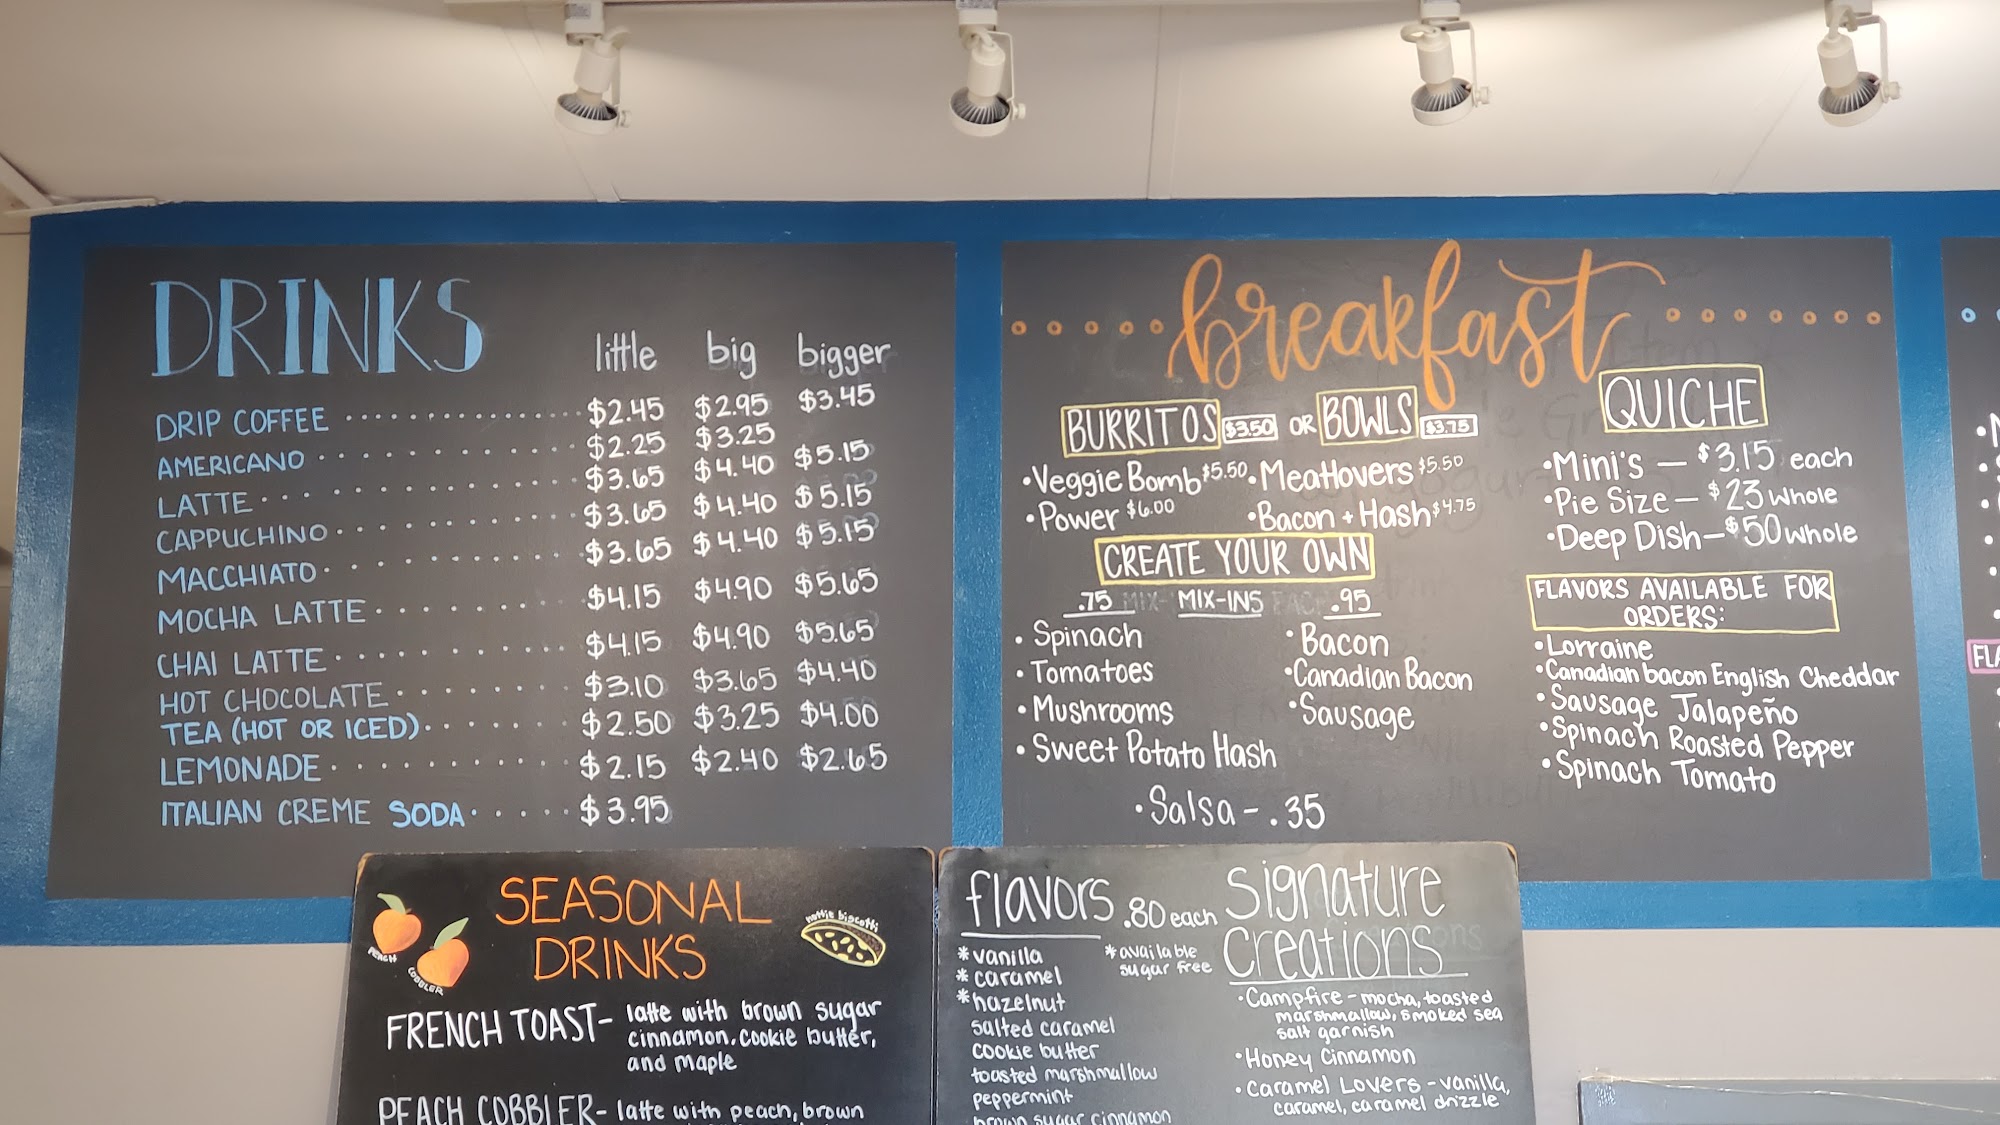 DRINKS
little big bigger
DRIP COFFEE $2.45 $2.95 $3.45
AMERICANO $2.25 $3.25
LATTE $3.65 $4.40 $5.15
CAPPUCHINO $3.65 $4.40 $5.15
MACCHIATO $3.65 $4.40 $5.15
MOCHA LATTE $4.15 $4.90 $5.65
CHAI LATTE $4.15 $4.90 $5.65
HOT CHOCOLATE $3.10 $3.65 $4.40
TEA (HOT OR ICED) $2.50 $3.25 $4.00
LEMONADE $2.15 $2.40 $2.65
ITALIAN CREME SODA $3.95
breakfast
BURRITOS $3.50 OR BOWLS $3.75
•Veggie Bomb $5.50 •Meatlovers $5.50
•Power $6.00 •Bacon + Hash $4.75
CREATE YOUR OWN
.75 MIX-INS .95
• Spinach
• Tomatoes
• Mushrooms
• Sweet Potato Hash
•Bacon
•Canadian Bacon
•Sausage
•Salsa - .35
QUICHE
•Mini's — $3.15 each
•Pie Size — $23 whole
•Deep Dish — $50 whole
FLAVORS AVAILABLE FOR
ORDERS:
•Lorraine
•Canadian bacon English Cheddar
•Sausage Jalapeño
•Spinach Roasted Pepper
•Spinach Tomato
SEASONAL
DRINKS
PEACH
COBBLER
nottie biscotti
FRENCH TOAST- latte with brown sugar
cinnamon, cookie butter,
and maple
PEACH COBBLER- latte with peach, brown
flavors .80 each
*vanilla
*caramel
*hazelnut
salted caramel
cookie butter
toasted marshmallow
peppermint
brown sugar cinnamon
*available
sugar free
Signature
Creations
•Campfire - mocha, toasted
marshmallow, smoked sea
salt garnish
•Honey Cinnamon
•Caramel Lovers - vanilla,
caramel, caramel drizzle